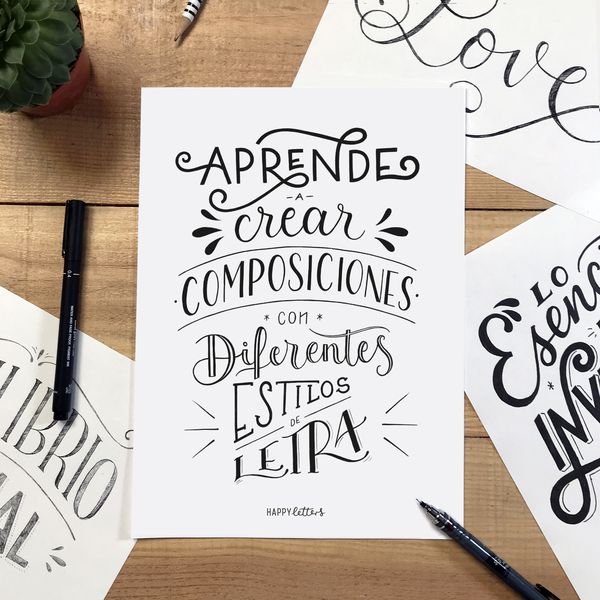 APRENDE
-A-
crear
·COMPOSICIONES·
* CON *
Diferentes
ESTILOS
DE
LETRA
HAPPY letters
Love
LO
Esenc
INV
LIBRIO
AL